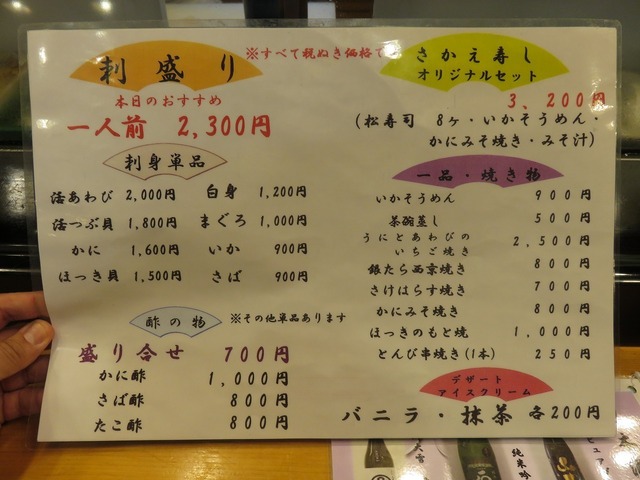 刺盛り
※すべて税ぬき価格で
本日のおすすめ
一人前 2,300円
刺身単品
活あわび 2,000円 白身 1,200円
活つぶ貝 1,800円 まぐろ 1,000円
かに 1,600円 いか 900円
ほっき貝 1,500円 さば 900円
酢の物
※その他単品あります
盛り合せ 700円
かに酢 1,000円
さば酢 800円
たこ酢 800円
さかえ寿し
オリジナルセット
3,200円
(松寿司 8ヶ・いかそうめん・
かにみそ焼き・みそ汁)
一品・焼き物
いかそうめん 900円
茶碗蒸し 500円
うにとあわびの
いちご焼き 2,500円
銀たら西京焼き 800円
さけはらす焼き 700円
かにみそ焼き 800円
ほっきのもと焼 1,000円
とんび串焼き(1本) 250円
デザート
アイスクリーム
バニラ・抹茶 各200円
純米吟